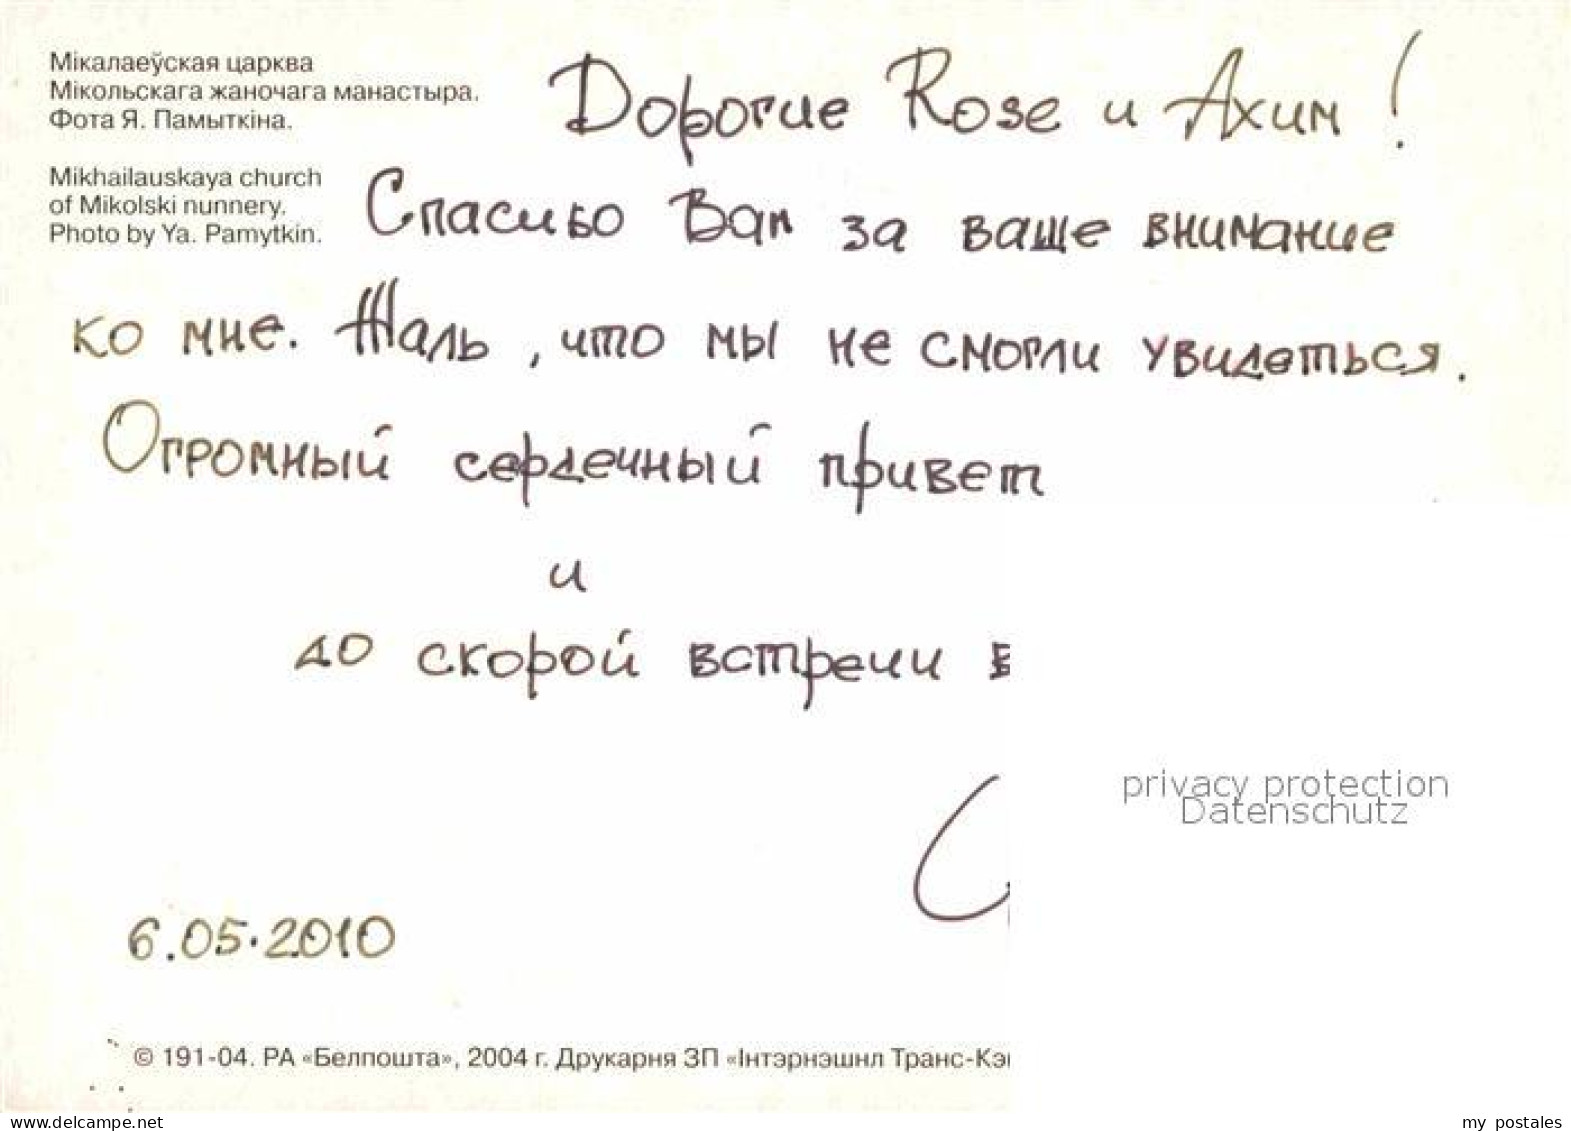 Мікалаеўская царква
Мікольскага жаночага манастыра.
Фота Я. Памыткіна.
Mikhailauskaya church
of Mikolski nunnery.
Photo by Ya. Pamytkin.
Дорогие Rose и Ахим!
Спасибо Вам за ваше внимание
ко мне. Жаль, что мы не смогли увидеться.
Огромный сердечный привет
и
до скорой встречи в
privacy protection
Datenschutz
6.05.2010
© 191-04. РА «Белпошта», 2004 г. Друкарня ЗП «Інтэрнэшнл Транс-Кэ
www.delcampe.net
my_postales